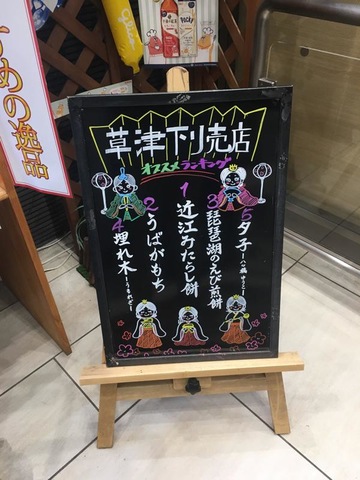 草津下り売店
オススメランキング
5夕子
3琵琶湖のえび煎餅
1近江みたらし餅
2うばがもち
4埋れ木
ーうもれぎー
めの逸品